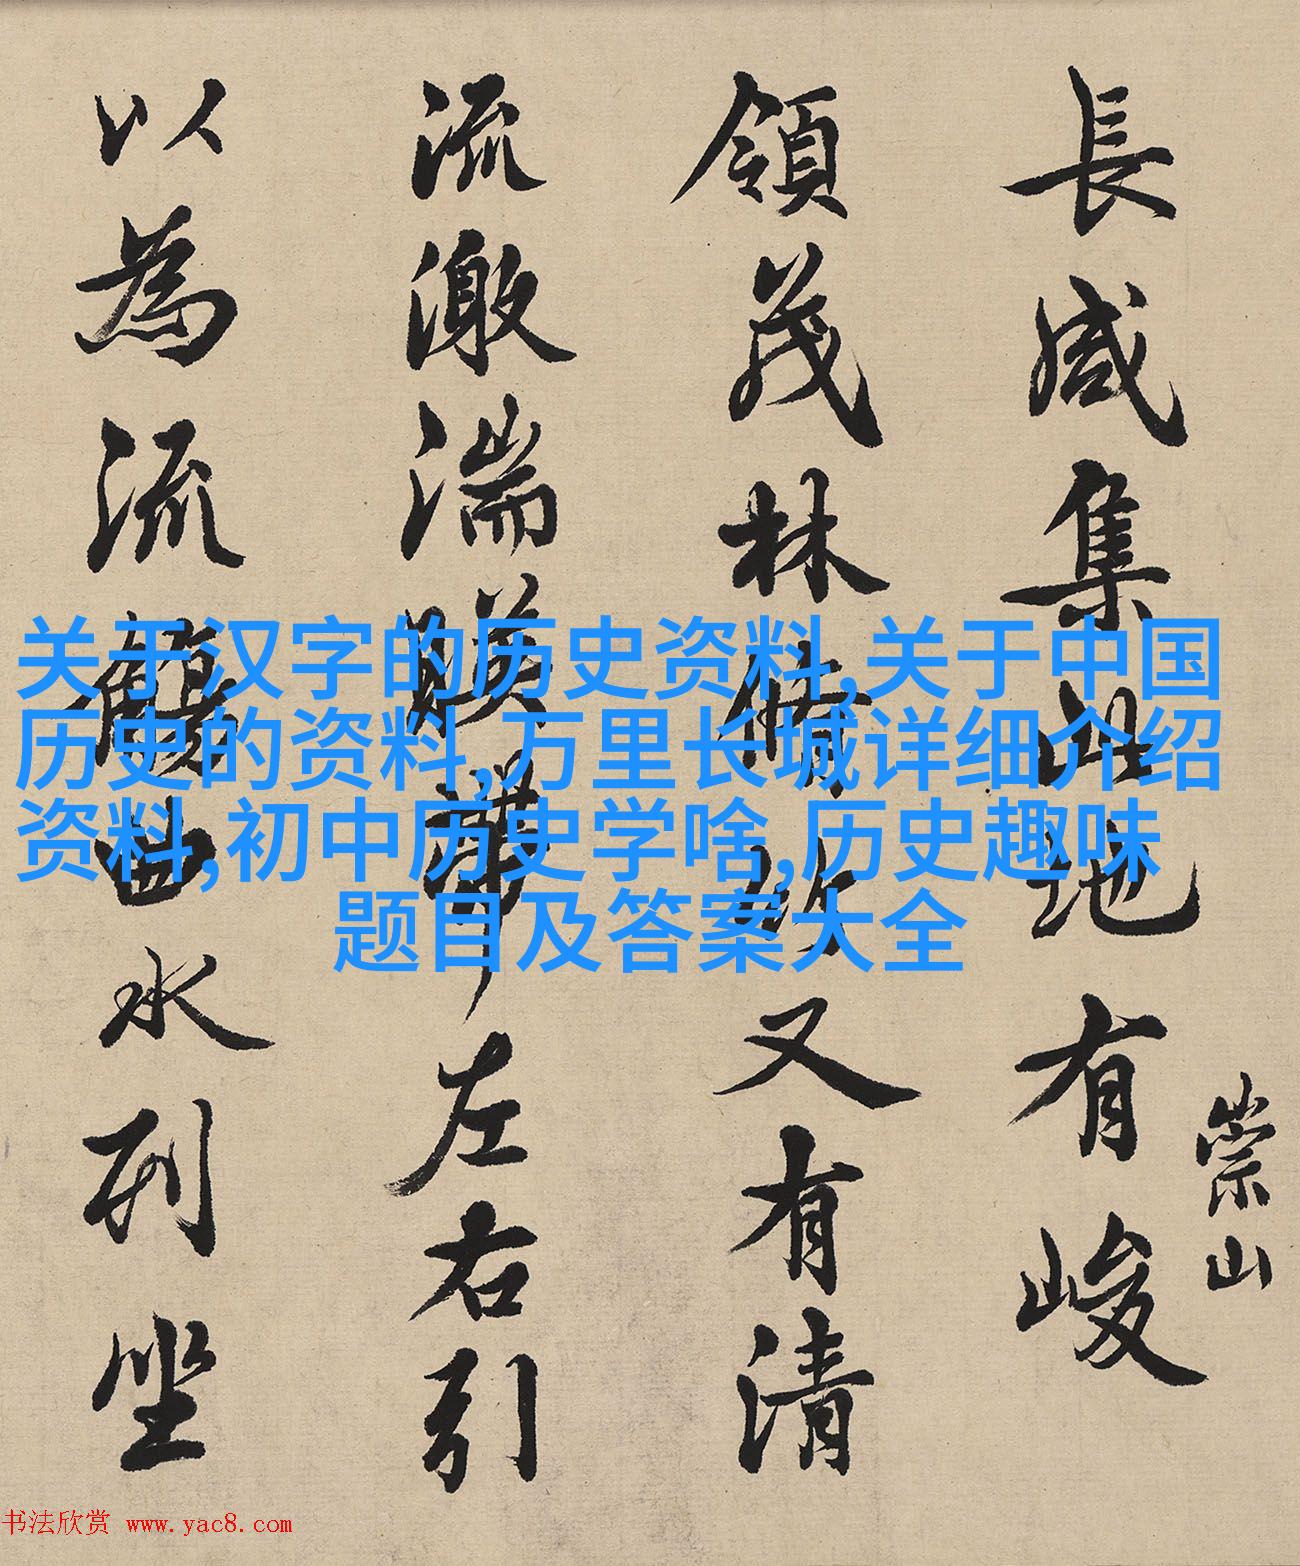 崇山
長咸集此地有峻
領茂林脩竹又有清
流激湍暎帶左右引
以為流觴曲水列坐
关于汉字的历史资料,关于中国
历史的资料,万里长城详细介绍
资料,初中历史学啥,历史趣味
题目及答案大全
书法欣赏 www.yac8.com